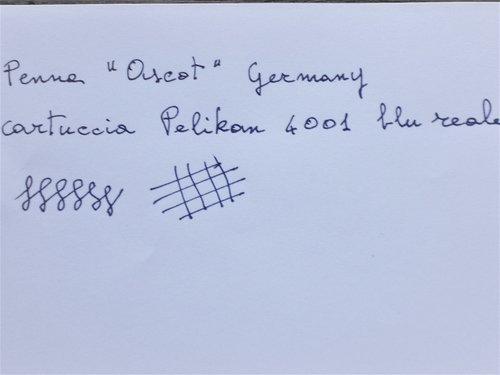 Penna "Oscot" Germany
cartuccia Pelikan 4001 blu reale